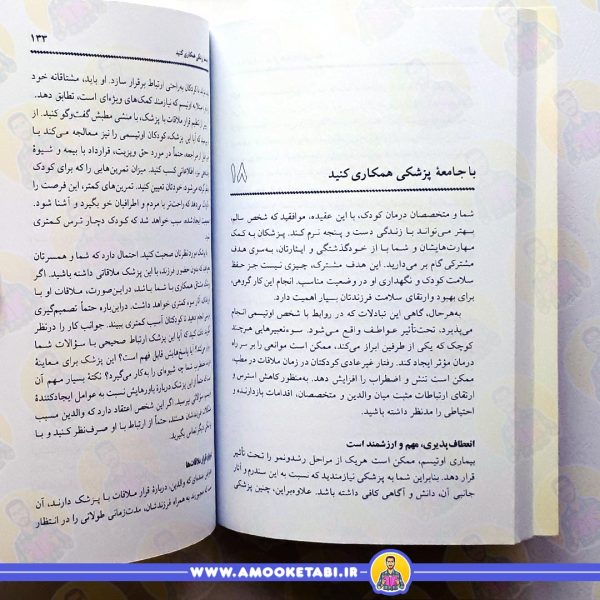 ۱۸
با جامعهٔ پزشکی همکاری کنید
شما و متخصصان درمان کودک، با این عقیده، موافقید که شخص سالم،
بهتر می‌تواند با زندگی دست و پنجه نرم کند. پزشکان به کمک
مهارت‌هایشان و شما با از خودگذشتگی و ایثارتان، به‌سوی هدف
مشترکی گام بر می‌دارید. این هدف مشترک، چیزی نیست جز حفظ
سلامت کودک و نگهداری او در وضعیت مناسب. انجام این کار گروهی،
برای بهبود و ارتقای سلامت فرزندتان بسیار اهمیت دارد.
به‌هرحال، گاهی این تبادلات که در روابط با شخص اوتیسمی انجام
می‌پذیرد، تحت‌تأثیر عواطف واقع می‌شود. سوء‌تعبیرهایی هرچند
کوچک که یکی از طرفین ابراز می‌کند، ممکن است موانعی را بر سر راه
درمان مؤثر ایجاد کند. رفتار غیرعادی کودکتان در زمان ملاقات در مطب،
ممکن است تنش و اضطراب را افزایش دهد. به‌منظور کاهش استرس و
ارتقای ارتباطات مثبت میان والدین و متخصصان، اقدامات بازدارنده و
احتیاطی را مدنظر داشته باشید.
انعطاف‌پذیری، مهم و ارزشمند است
بیماری اوتیسم، ممکن است هریک از مراحل رشدونمو را تحت تأثیر
قرار دهد. بنابراین شما به پزشکی نیازمندید که نسبت به این سندرم و آثار
جانبی آن، دانش و آگاهی کافی داشته باشد. علاوه‌براین، چنین پزشکی
۱۳۳
همکاری کنید
به‌راحتی ارتباط برقرار سازد. او باید، مشتاقانه خود
اوتیسم که نیازمند کمک‌های ویژه‌ای است، تطابق دهد.
قرار ملاقات با پزشک، با منشی مطبش گفت‌وگو کنید. از
که آیا این پزشک، کودکان اوتیسمی را نیز معالجه می‌کند یا
حتماً در مورد حق ویزیت، قرارداد با بیمه و شیوهٔ
اطلاعاتی کسب کنید. میزان تمرین‌هایی را که برای کودک
خودتان تعیین کنید. تمرین‌های کمتر، این فرصت را
تا راحت‌تر با مردم و اطرافیان خو بگیرد و آشنا شود.
ایجادشده سبب خواهد شد که کودک دچار ترس کمتری
مورد نظرتان صحبت کنید. احتمال دارد که شما و همسرتان
بدون حضور فرزند، با این پزشک ملاقاتی داشته باشید. اگر
همکاری با شما باشد، دراین‌صورت، ملاقات او با
کمتری خواهد داشت. دراین‌باره حتماً تصمیم‌گیری
کودکتان آسیب کمتری ببیند. جوانب کار را درنظر
آیا این پزشک ارتباط صحیحی با سؤالات شما
آیا پاسخ‌هایش قابل فهم است؟ این پزشک برای معاینهٔ
شما چه شیوه‌ای را به‌کار می‌گیرد؟ نکتهٔ بسیار مهم آن
از این پزشک دربارهٔ باورهایش نسبت به عوامل ایجادکنندهٔ
بپرسید. اگر این شخص اعتقاد دارد که والدین مسبب
هستند، حتماً از ارتباط با او صرف‌نظر کنید و با
دیگر تماس بگیرید.
قرار ملاقات‌ها
که والدین، دربارهٔ قرار ملاقات با پزشک دارند، آن
به همراه فرزندشان، مدت‌زمانی طولانی را در انتظار
WWW.AMOOKETABI.IR